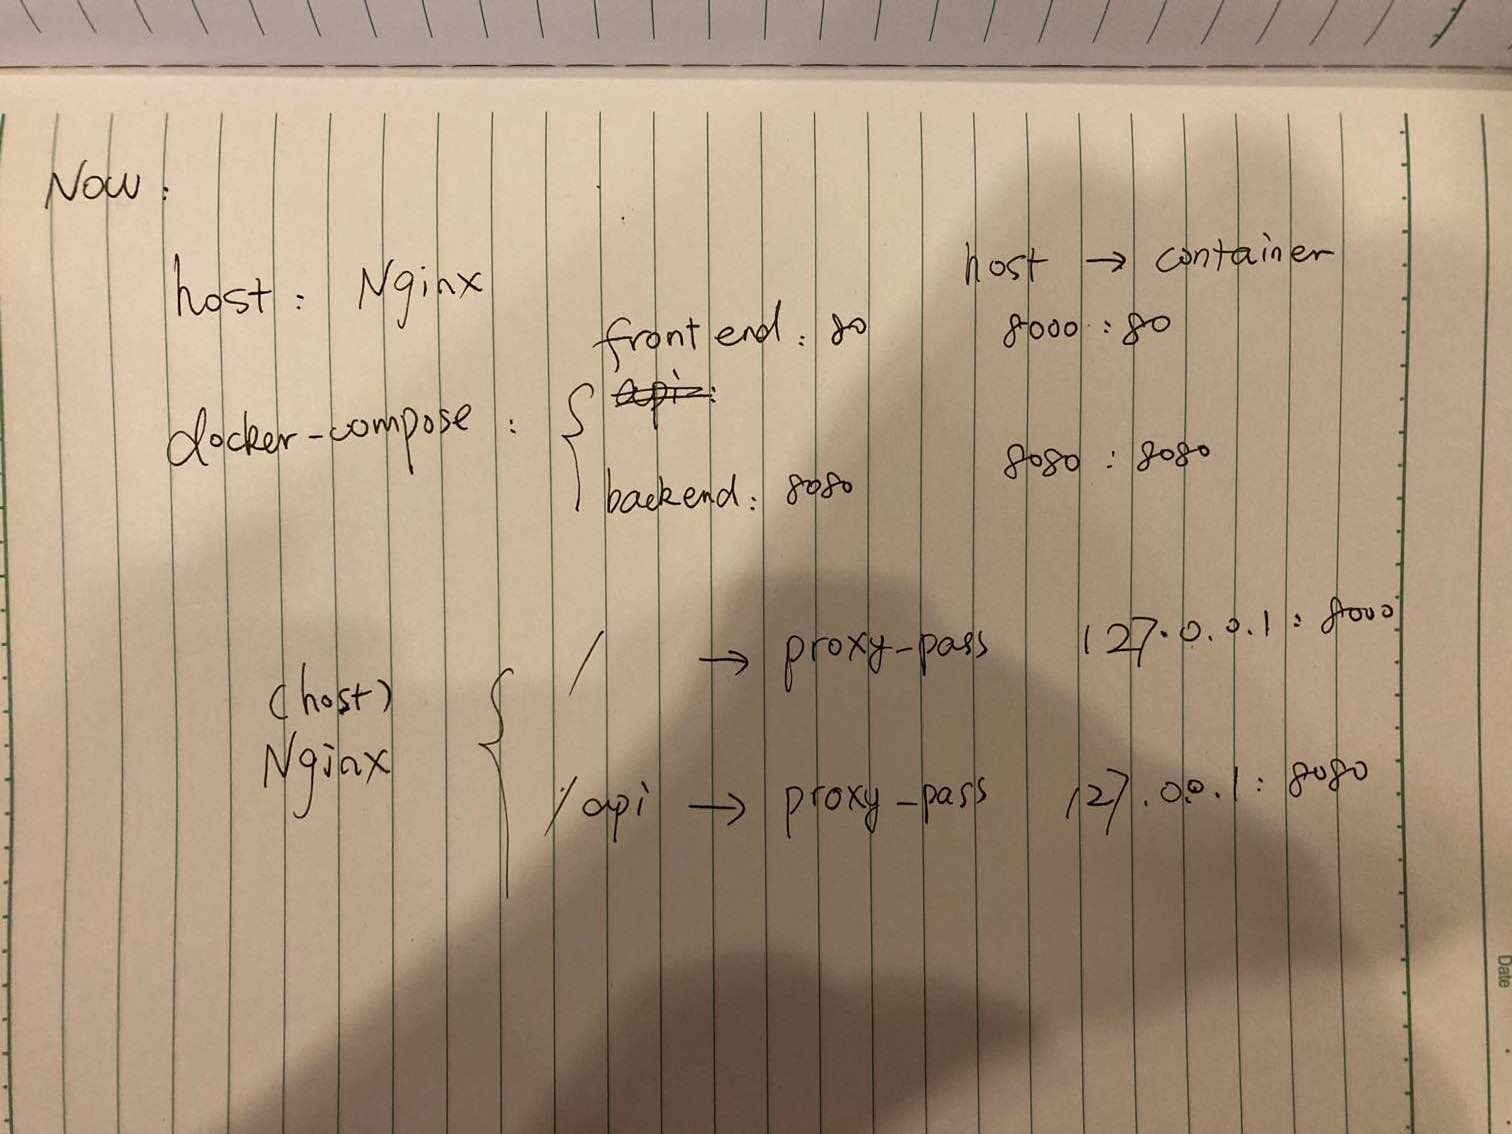 Now:
host: Nginx
host → container
frontend: 80
8000:80
api:
docker-compose:
backend: 8080
8080:8080
/ → proxy-pass 127.0.0.1:8000
(host)
Nginx
/api → proxy-pass 127.00.1:8080
Date